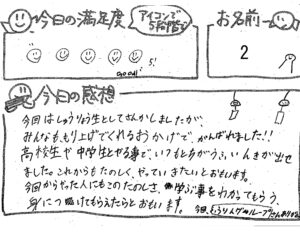 今日の満足度
アイコンで
5段階で
お名前
GOOD!
5!
2
今日の感想
今回はしゅうりょう生としてさんかしましたが、
みんなももり上げてくれるおかげで、がんばれました!!
高校生や中学生とやる事で、いつもとちがうふいんきが出せ
ました。これからもたのしく、やっていきたいとおもいます。
今回からやった人にもこのたのしさ、学ぶ事をわかってもらう、
身につけてもらえたらとおもいます。
今回、
グループ